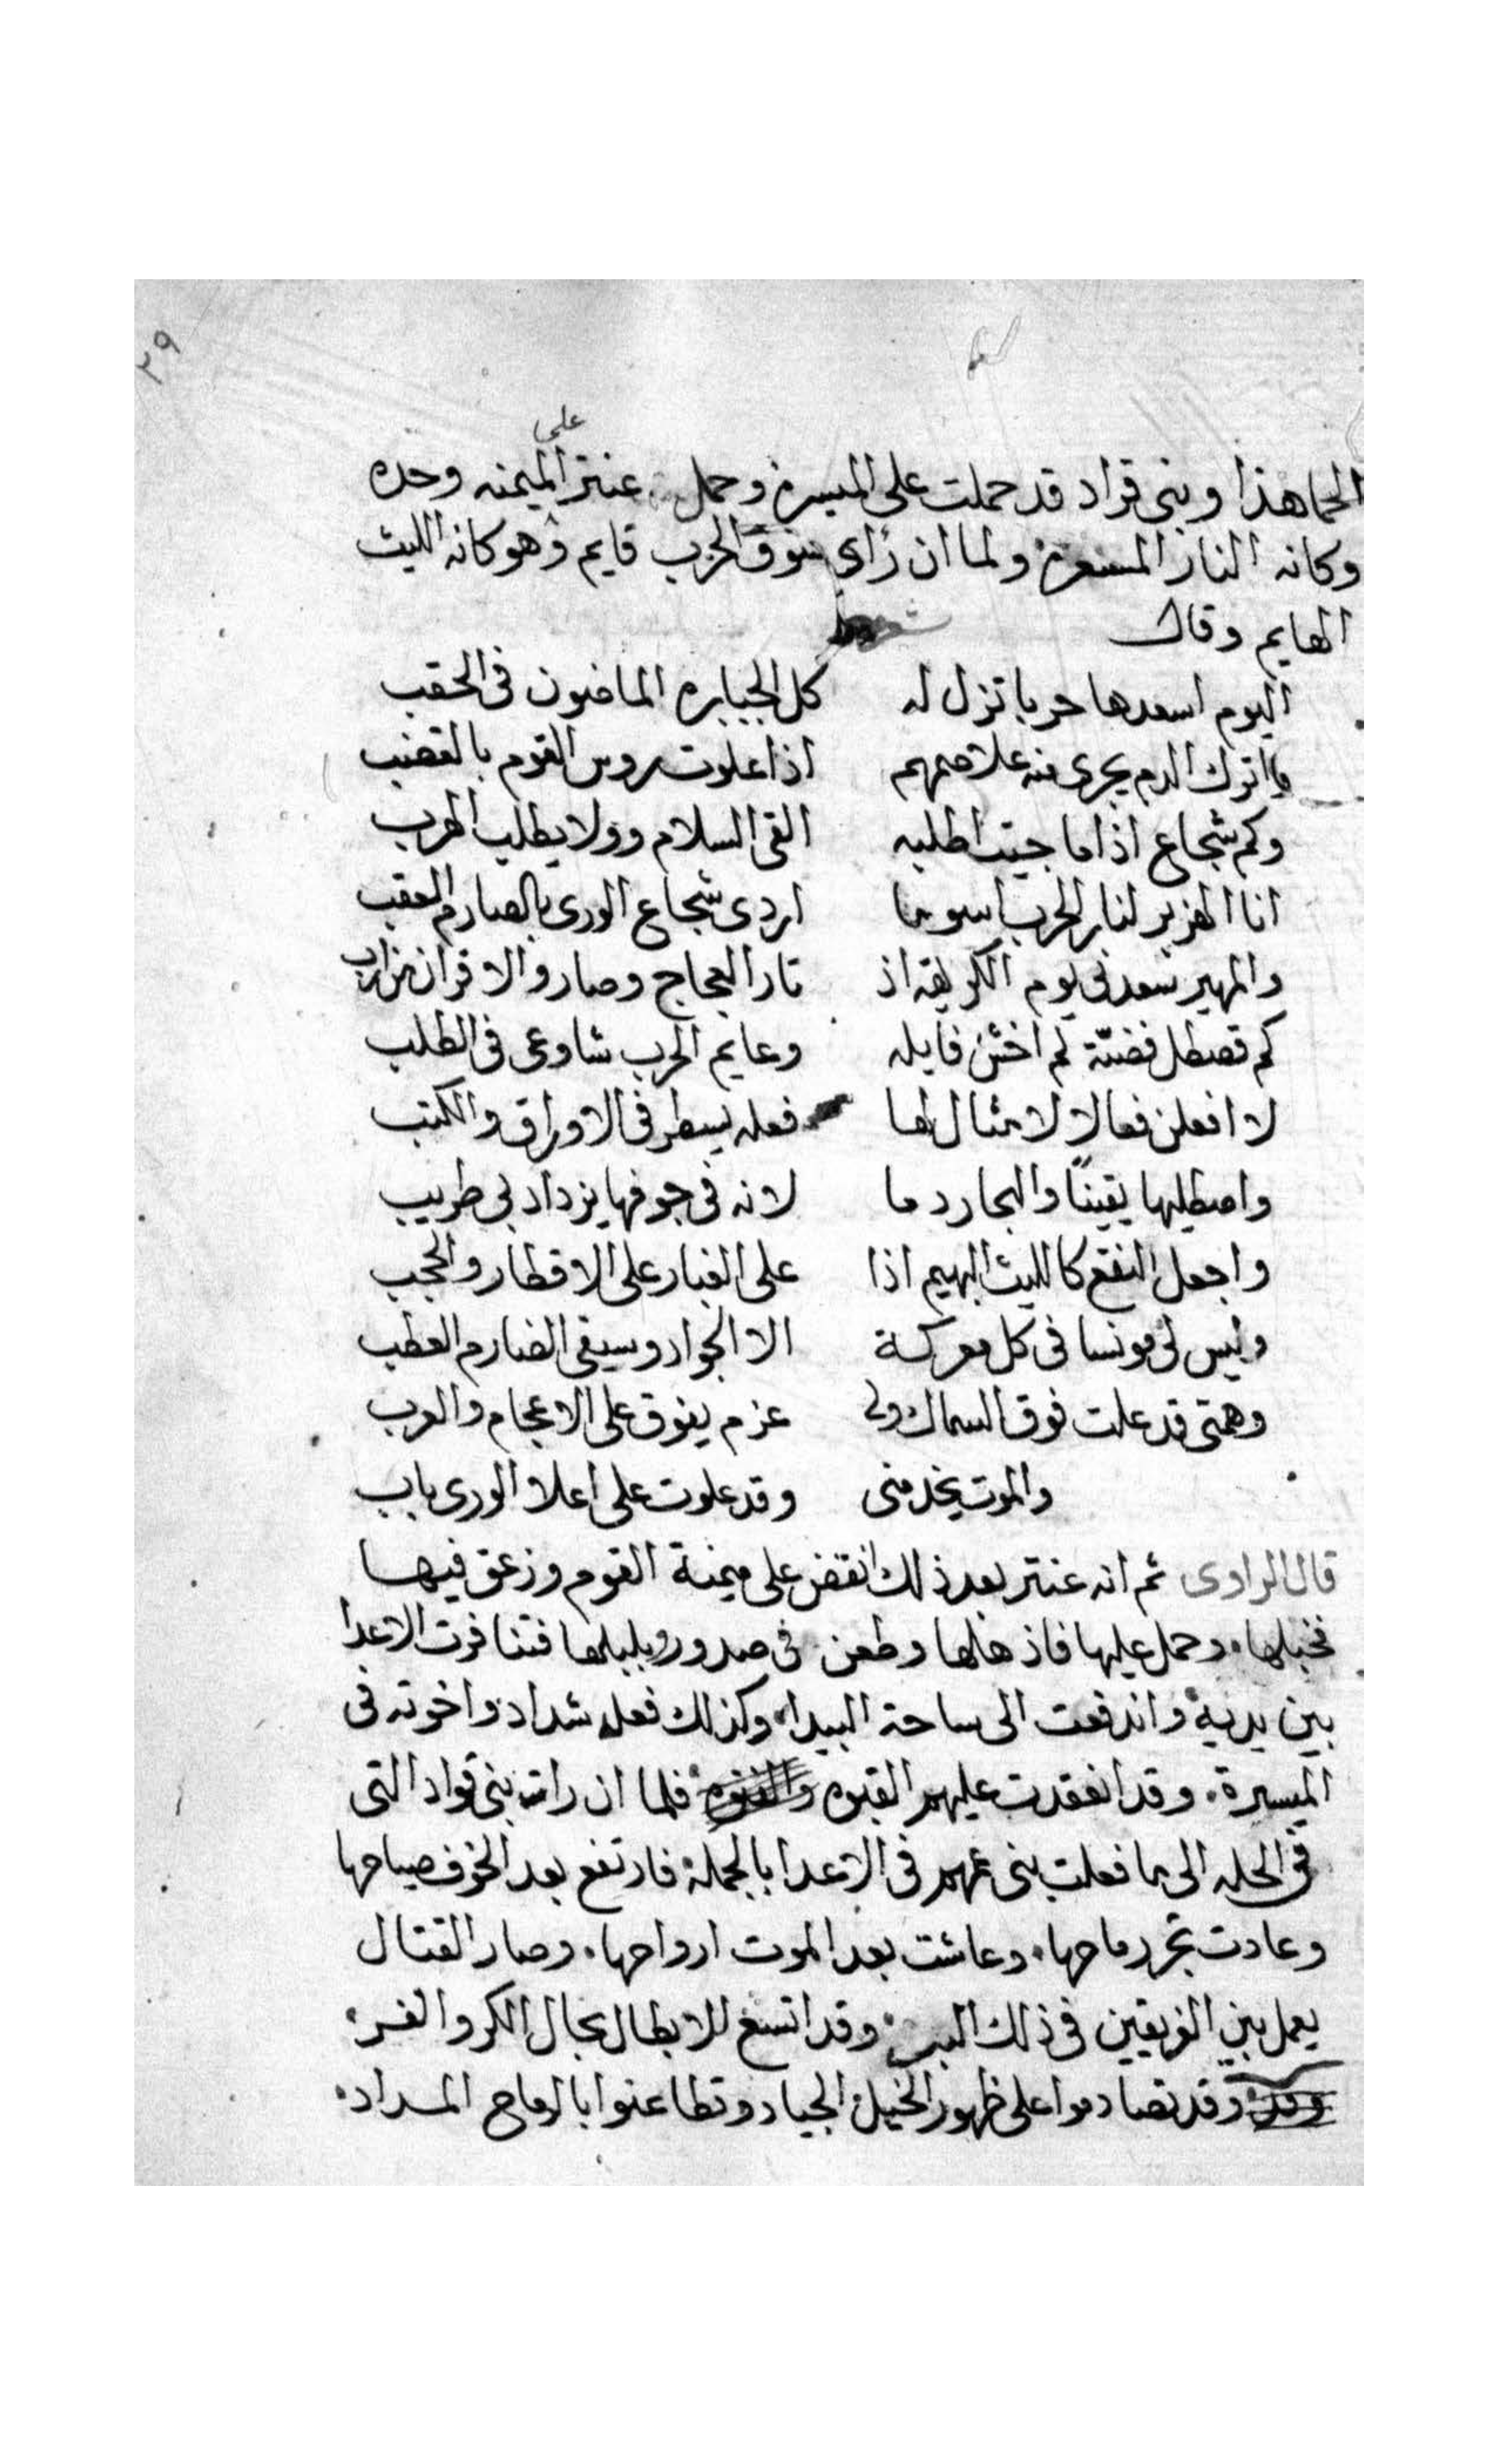 ٣٩
على
الحما هذا وبنى قراد قد حملت على الميسره وحمل عنتر الميمنه وحده
وكانه النار المسعره ولما ان رأى سوق الحرب قايم وهو كانه الليث
الهايم وقال
اليوم اسعدها حربا تزل له كل الجبابره الماضون فى الحقب
واترك الدم يجرى منه علا صمهم اذا علوت روس القوم بالقضب
وكم شجاع اذا ما جيت اطلبه القى السلام وولا يطلب الهرب
انا الهزبر لنار الحرب اسوما اردى شجاع الورى بالصارم العقب
والمهير سعدنى يوم الكريهة اذ تار العجاج وصارو الاقران
كم قصطل فضيته لم اخش قايله وعايم الحرب شاوعى فى الطلب
لا افعلن فعالا لا مثال لها فعله يسطر فى الاوراق والكتب
واصطليها يقيناً والبحار دما لانه فى جوفها يزداد بى طريب
واجعل النقع كالليث البهيم اذا على الغبار على الاقطار والحجب
وليس لى مونسا فى كل معركة الا الجواد وسيفى الضارم العطب
وهمتى قد علت فوق السماك ولى عزم يفوق على الاعجام والعرب
والموت يخدمنى وقد علوت على اعلا الورى باب
قال الراوى ثم انه عنتر بعد ذلك انقض على ميمنة القوم وزعق فيها
فخبلها، وحمل عليها فاذهلها وطعن فى صدور وبلبلها فتنافرت الاعدا
بين يديه واندفعت الى ساحة البيدا، وكذلك فعله شداد واخوته فى
الميسرة، وقد انعقدت عليهم الغبره فلما ان رات بنى قراد التى
فى الحله الى ما فعلت بنى عمهم فى الاعدا بالجملة فارتفع بعد الخوف صياحها
وعادت تجر رماحها، وعاشت بعد الموت ارواحها، وصار القتال
يعمل بين الفريقين فى ذلك البر، وقد اتسع للابطال مجال الكر والفر،
وقد تصادموا على ظهور الخيل الجياد وتطاعنوا بالرماح المداد،